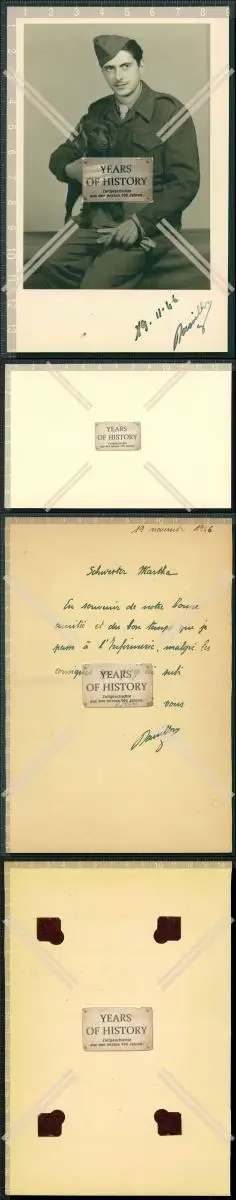 YEARS
OF HISTORY
Zeitgeschichte
aus den letzten 100 Jahren.
19.11.46
YEARS
OF HISTORY
Zeitgeschichte
aus den letzten 100 Jahren.
19 novembre 1946
Schwester Martha
En souvenir de notre bonne
amitié et du bon temps que je
passe à l'Infirmerie, malgré les
YEARS
OF HISTORY
Zeitgeschichte
aus den letzten 100 Jahren.
vous
YEARS
OF HISTORY
Zeitgeschichte
aus den letzten 100 Jahren.